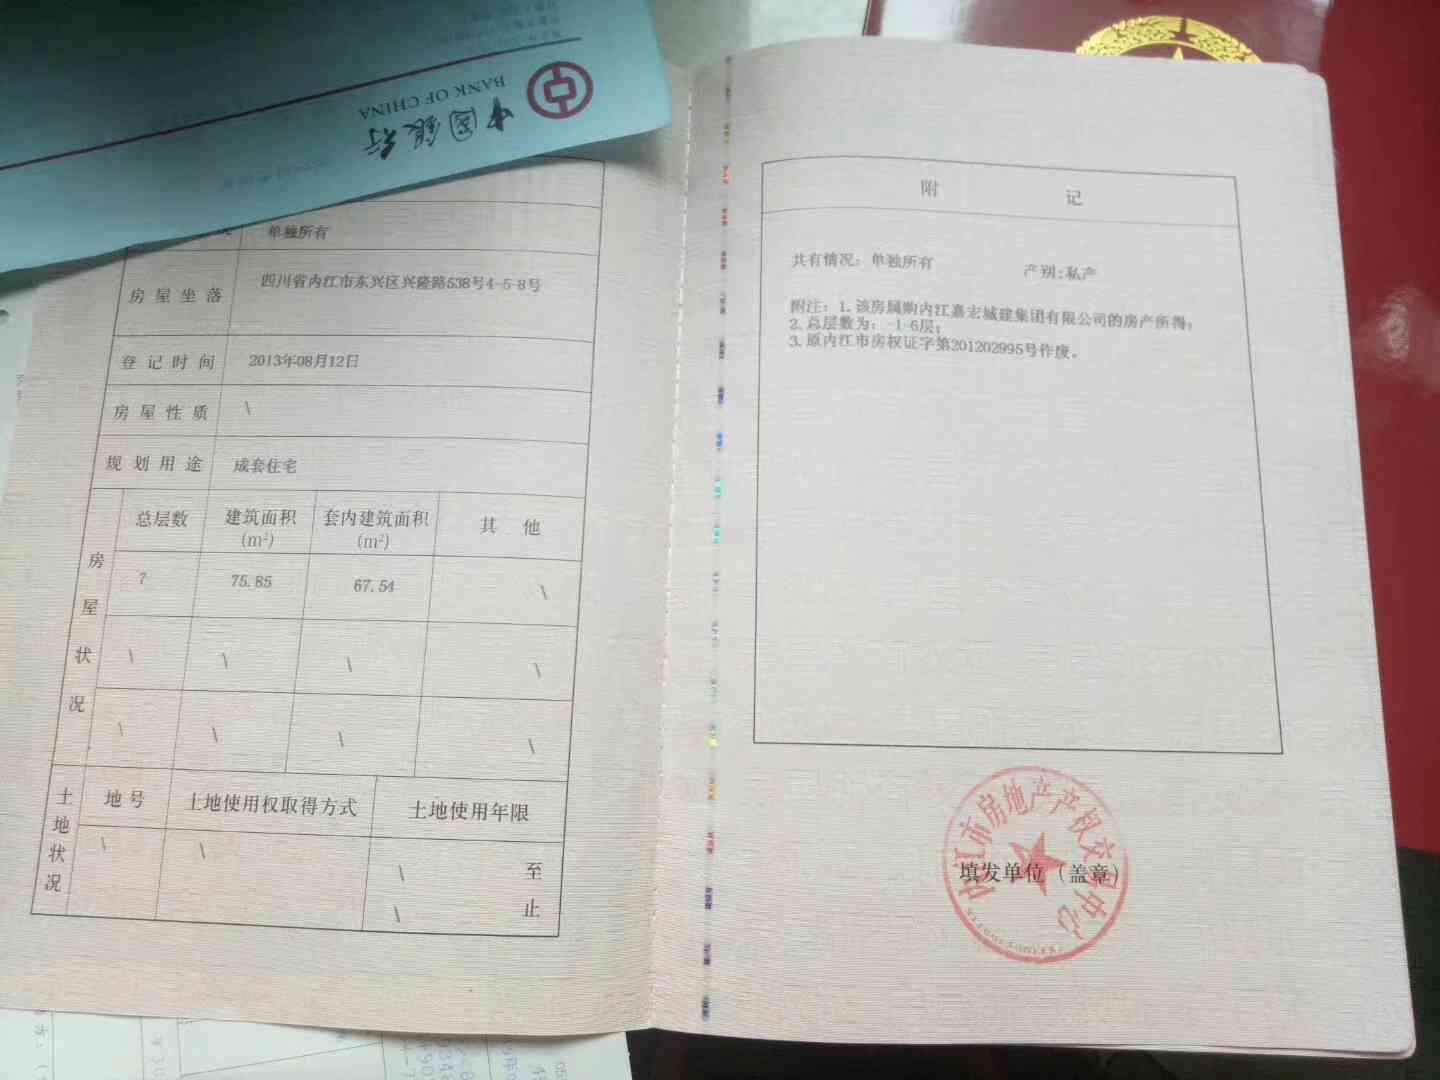 中国银行
BANK OF CHINA
单独所有
房屋坐落 四川省内江市东兴区兴隆路538号4-5-8号
登记时间 2013年08月12日
房屋性质 \
规划用途 成套住宅
房屋状况
总层数 建筑面积(m²) 套内建筑面积(m²) 其他
7 75.85 67.54 \
\ \ \ \
\ \ \ \
土地状况
地号 土地使用权取得方式 土地使用年限
\ \ \ 至
\ 止
附记
共有情况: 单独所有 产别:私产
附注: 1.该房属购内江嘉宏城建集团有限公司的房产所得;
2.总层数为: -1-6层;
3.原内江市房权证字第201202995号作废。
内江市房地产产权交易中心
填发单位(盖章)